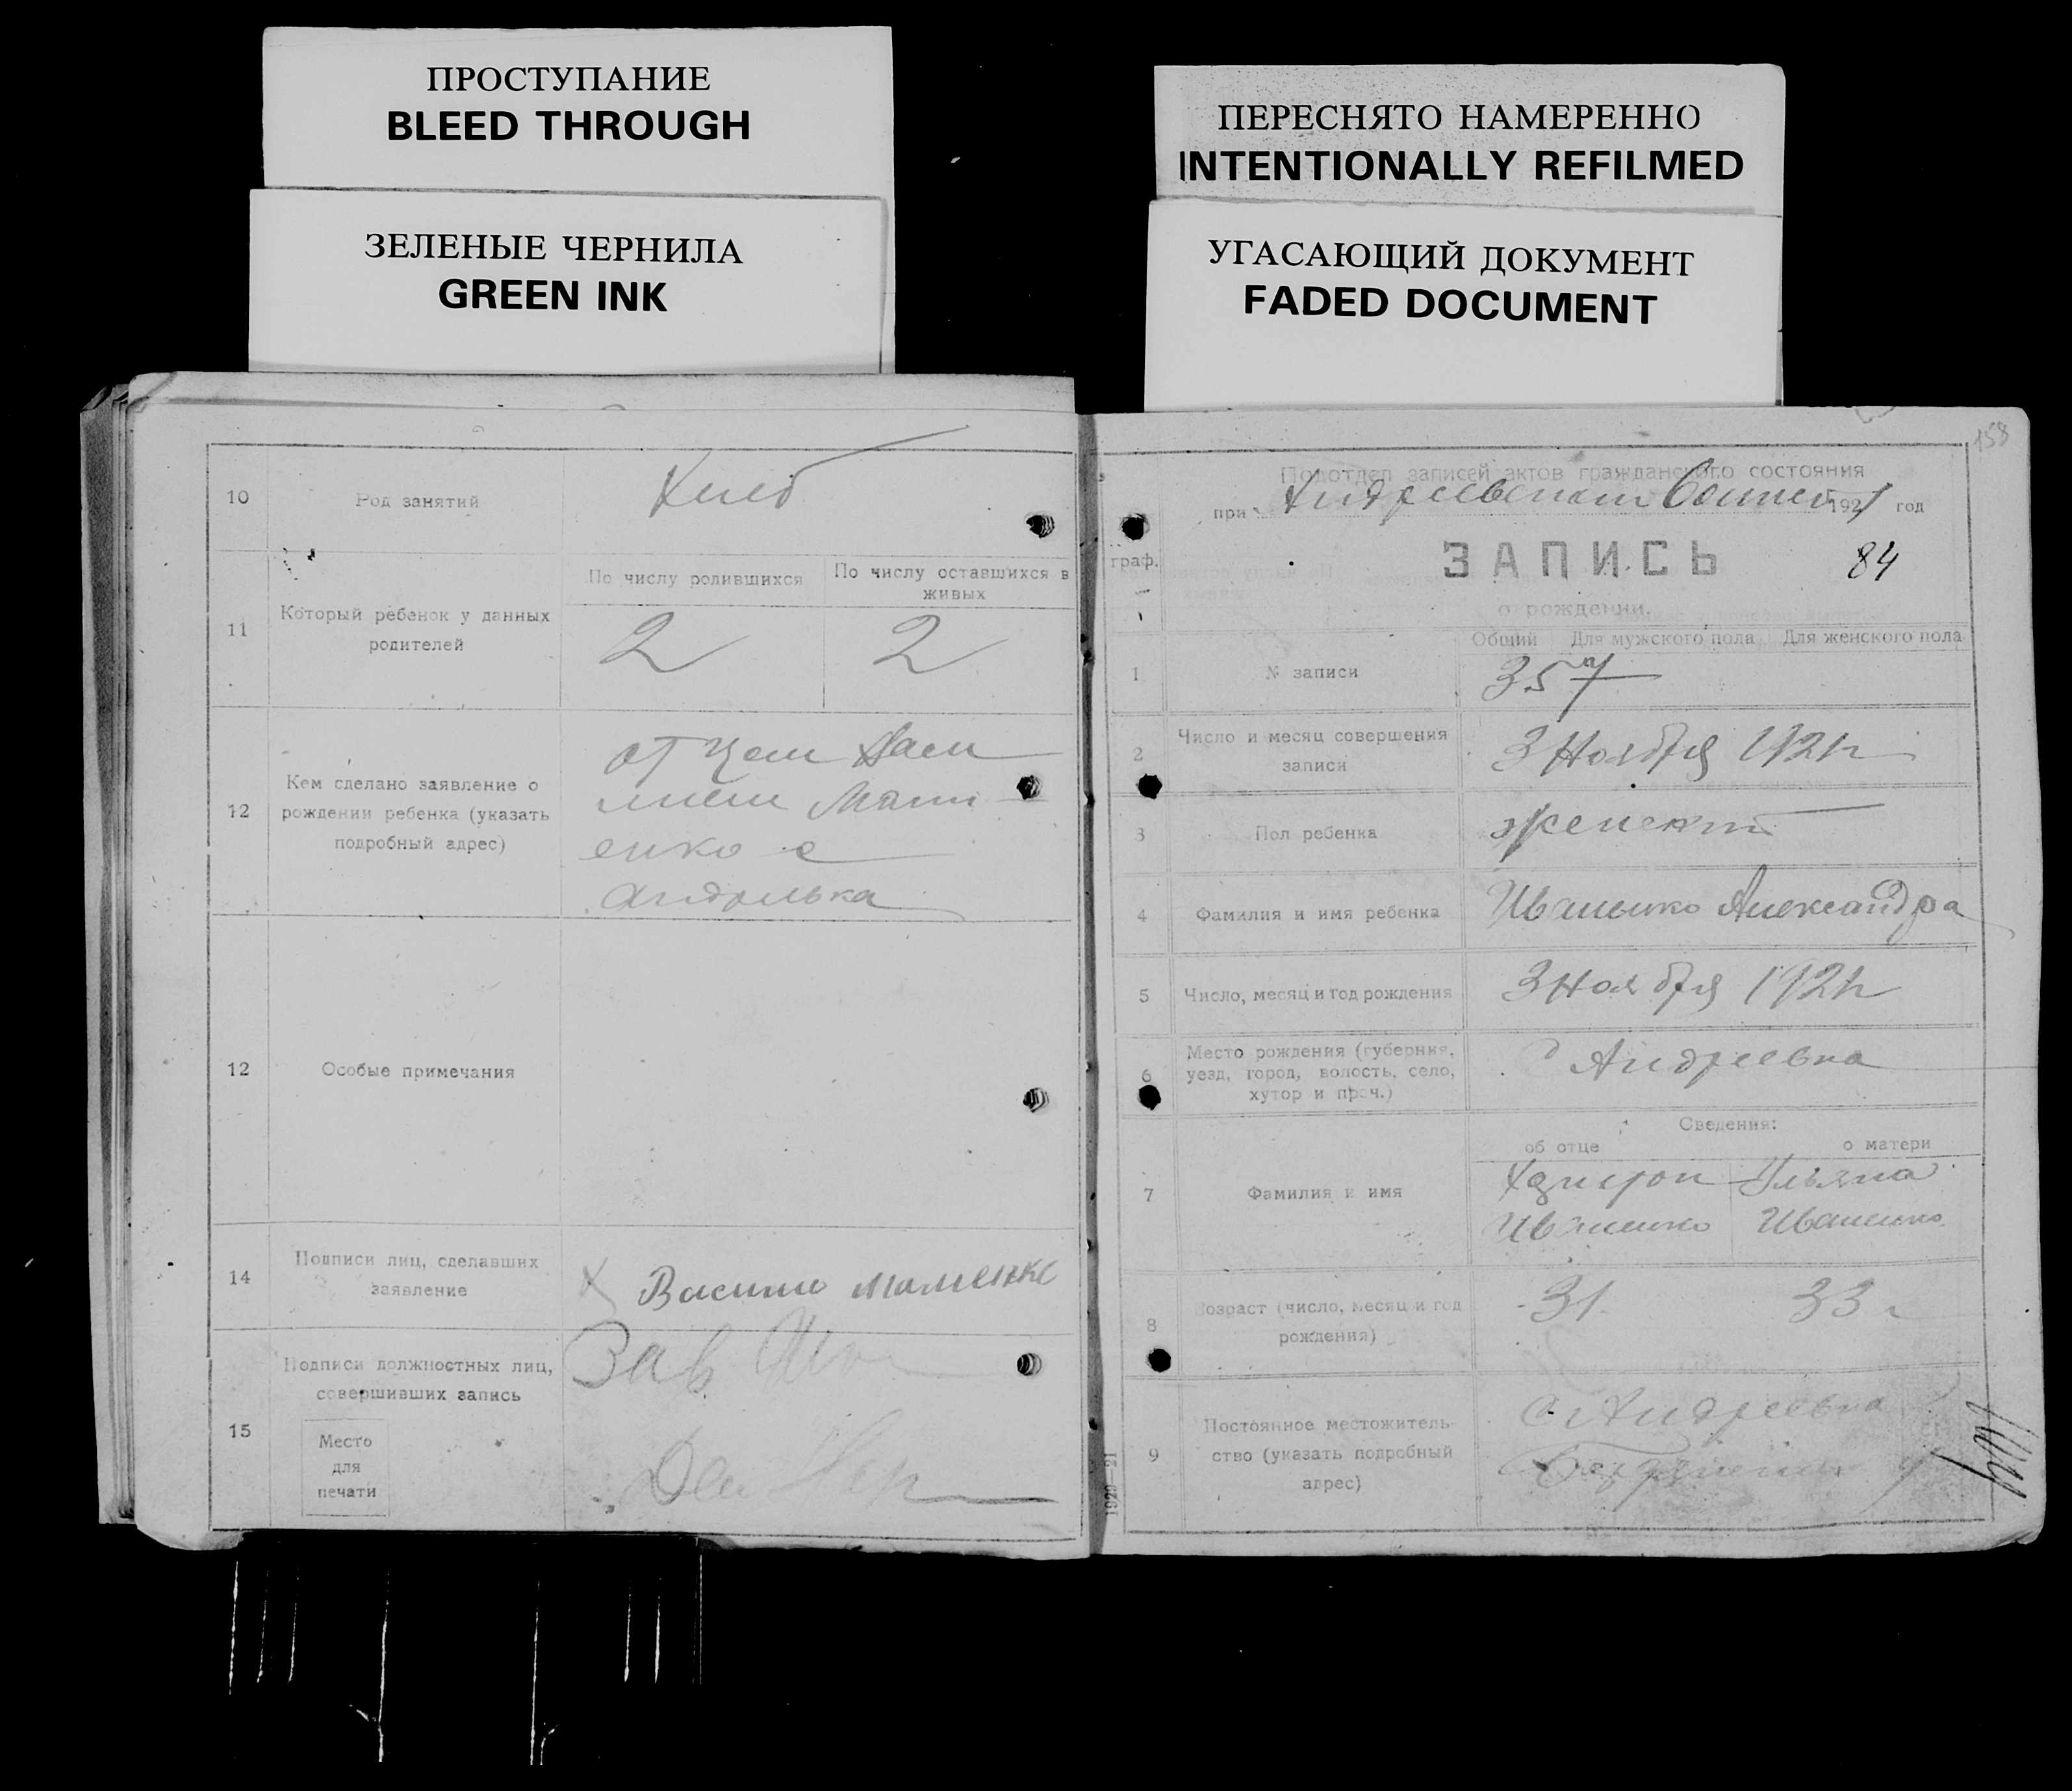 ПРОСТУПАНИЕ
BLEED THROUGH
ЗЕЛЕНЫЕ ЧЕРНИЛА
GREEN INK
ПЕРЕСНЯТО НАМЕРЕННО
INTENTIONALLY REFILMED
УГАСАЮЩИЙ ДОКУМЕНТ
FADED DOCUMENT
10
Род занятий
Хлеб
11
Который ребенок у данных
родителей
По числу родившихся
По числу оставшихся в
живых
2
2
12
Кем сделано заявление о
рождении ребенка (указать
подробный адрес)
отцем
енко с
12
Особые примечания
14
Подписи лиц, сделавших
заявление
Василь
15
Подписи должностных лиц,
совершивших запись
Место
для
печати
Зав
158
Подотдел записей актов гражданского состояния
при Андреевском 1921 год
граф.
ЗАПИСЬ
84
о рождении.
Общий
Для мужского пола
Для женского пола
1
№ записи
357
2
Число и месяц совершения
записи
3 Ноября 1921
3
Пол ребенка
женский
4
Фамилия и имя ребенка
Иваненко Александра
5
Число, месяц и год рождения
3 Ноября 1921
6
Место рождения (губерния,
уезд, город, волость, село,
хутор и проч.)
с Андреевка
7
Фамилия и имя
Сведения:
об отце
о матери
Ульяна
Иваненко
Иваненко
8
Возраст (число, месяц и год
рождения)
31
33 г
9
Постоянное местожитель-
ство (указать подробный
адрес)
с Андреевка
1920—21